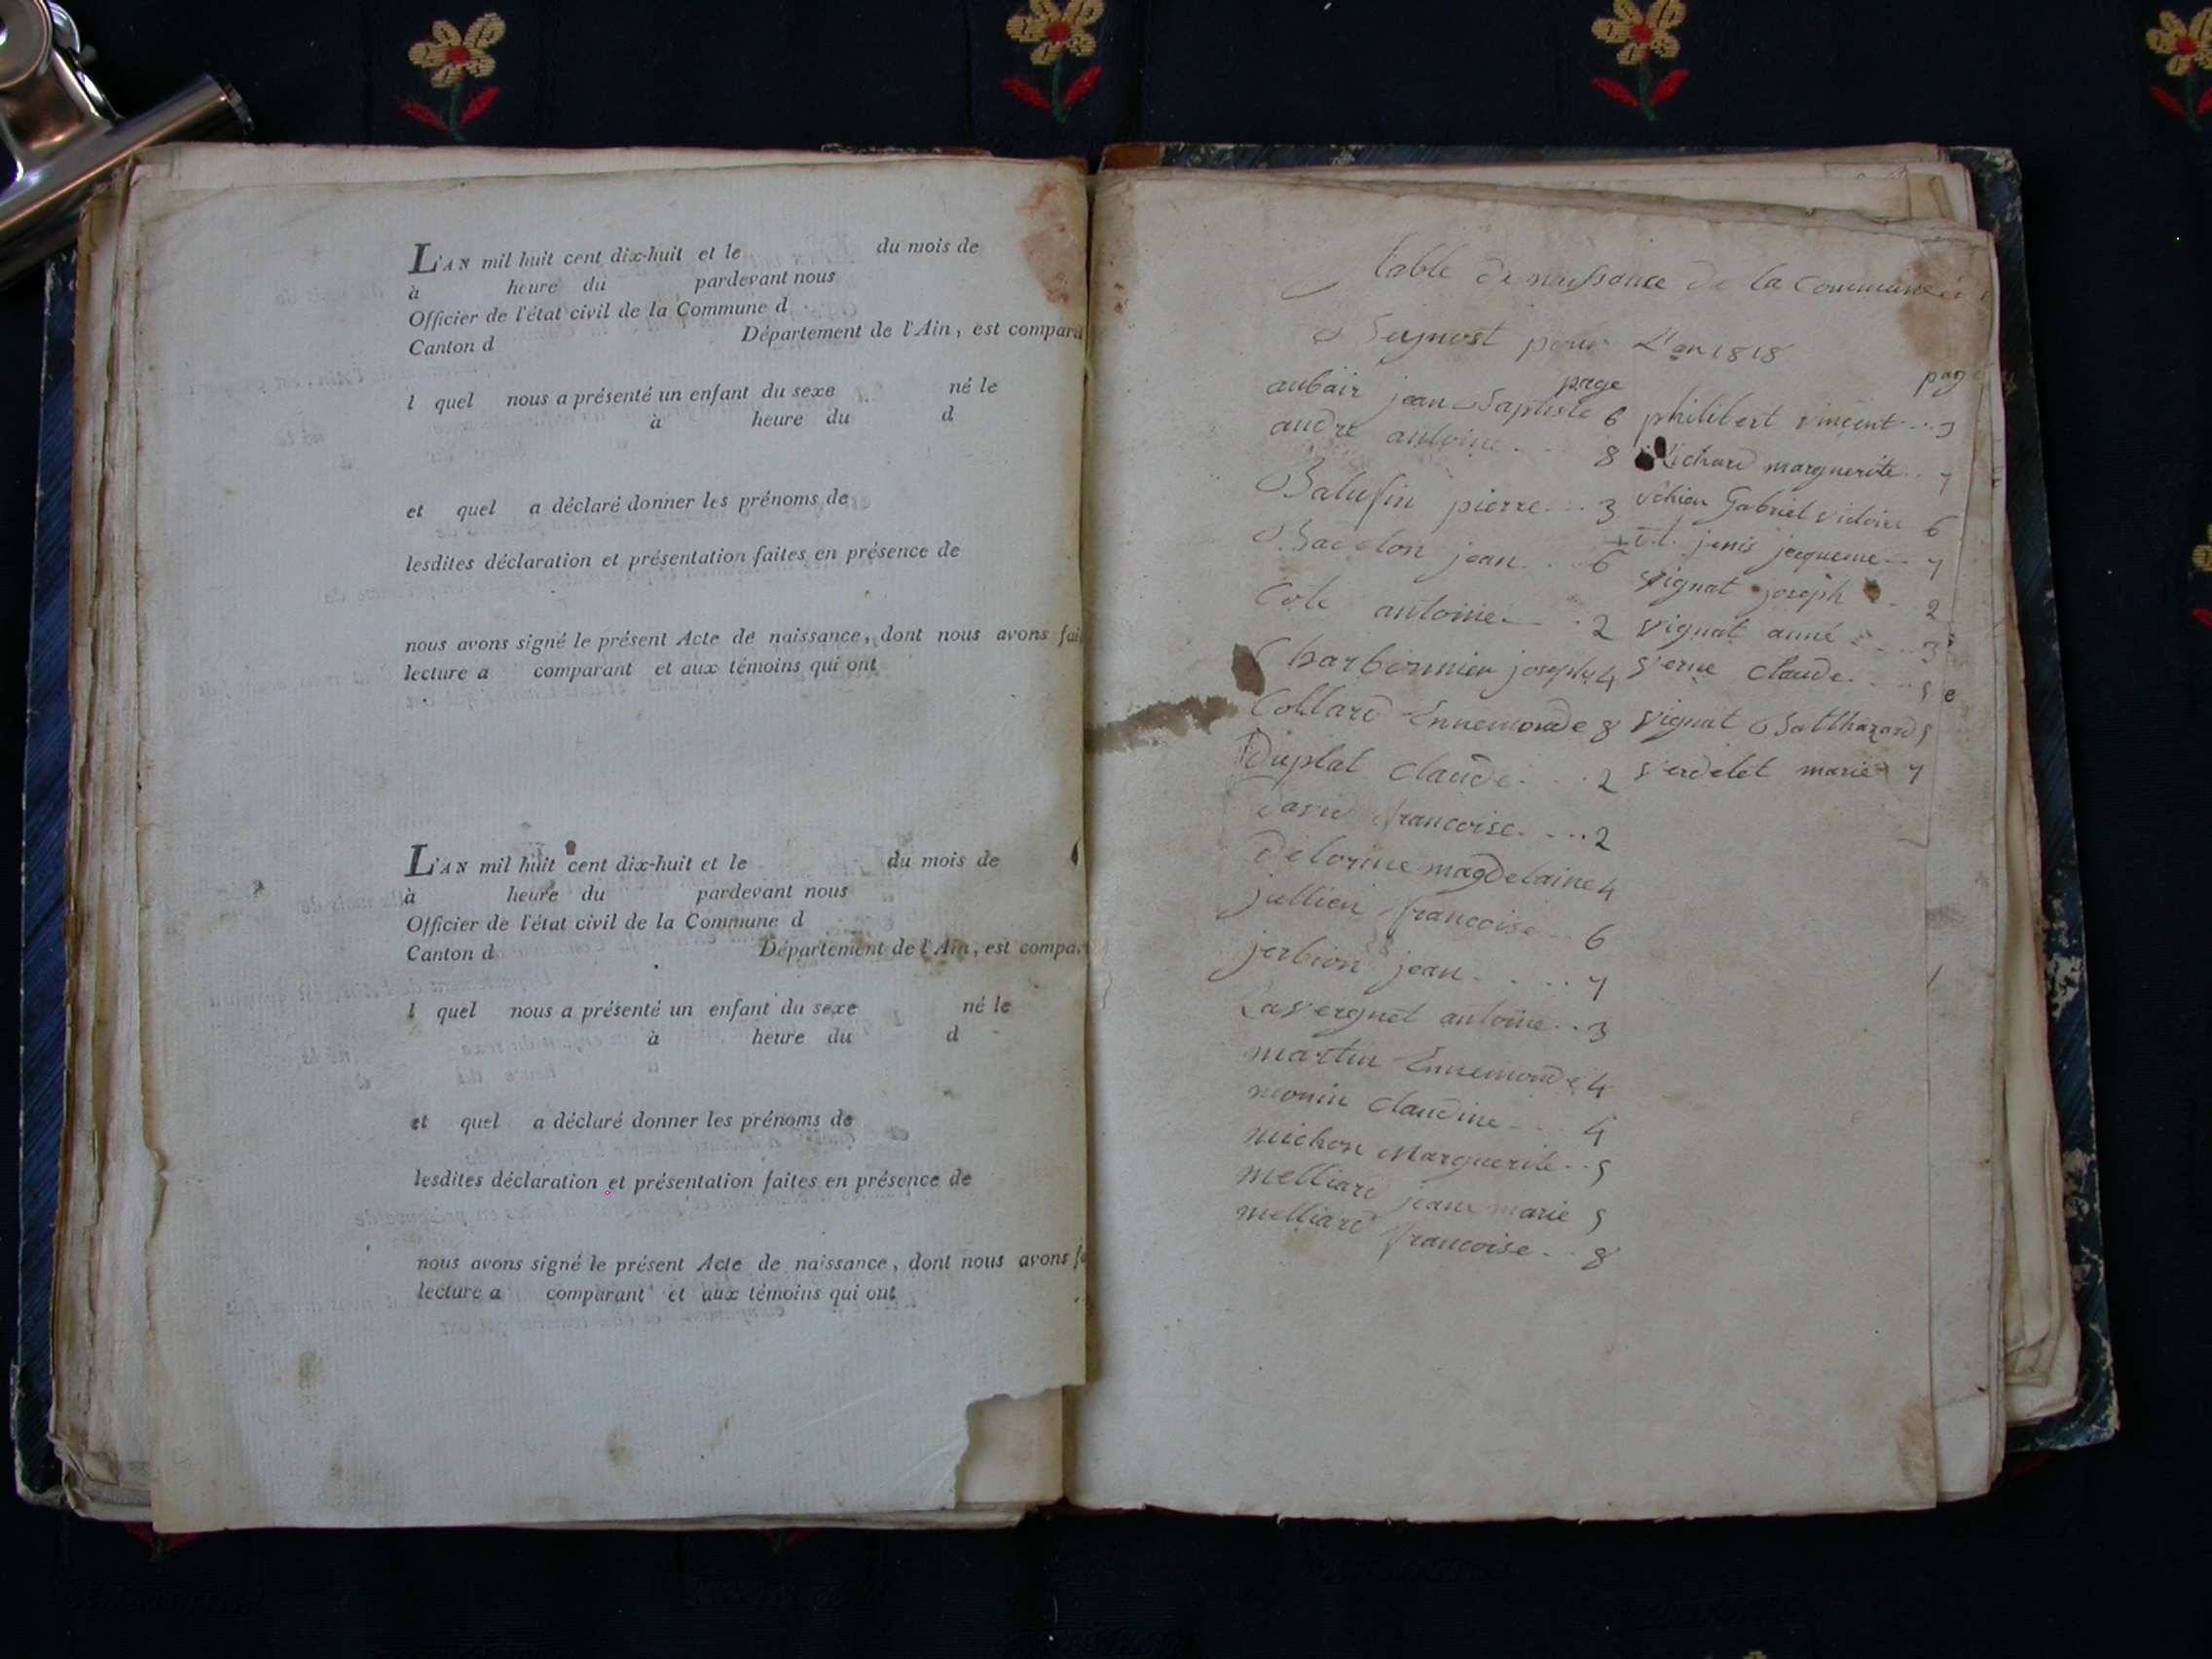 L'AN mil huit cent dix-huit et le du mois de
à heure du pardevant nous
Officier de l'état civil de la Commune d
Canton d Département de l'Ain, est compara
l quel nous a présenté un enfant du sexe né le
à heure du d
et quel a déclaré donner les prénoms de
lesdites déclaration et présentation faites en présence de
nous avons signé le présent Acte de naissance, dont nous avons fai
lecture a comparant et aux témoins qui ont
L'AN mil huit cent dix-huit et le du mois de
à heure du pardevant nous
Officier de l'état civil de la Commune d
Canton d Département de l'Ain, est compa
l quel nous a présenté un enfant du sexe né le
à heure du d
et quel a déclaré donner les prénoms de
lesdites déclaration et présentation faites en présence de
nous avons signé le présent Acte de naissance, dont nous avons fa
lecture a comparant et aux témoins qui ont
table de naissance de la Commune de
Beynost pour L'an 1818
page
aubair jean Baptiste 6
andré antoine 8
Balufin pierre 3
jean 6
Cote antoine 2
Charbonnier joseph 4
Collard Ennemonde 8
Duplat Claude 2
David francoise 2
Delorme magdelaine 4
jullien francoise 6
jerbion jean 7
Lavergnet antoine 3
martin Ennemonde 4
monin Claudine 4
michon Marguerite 5
melliard jean marie 5
melliard francoise 8
page
philibert vincent 3
Richard marguerite 7
Gabriel victoire 6
jenis jacqueme 7
vignat joseph 2
vignat anne 3
verne Claude 5
vignat Balthazard 5
verdelet marie 7